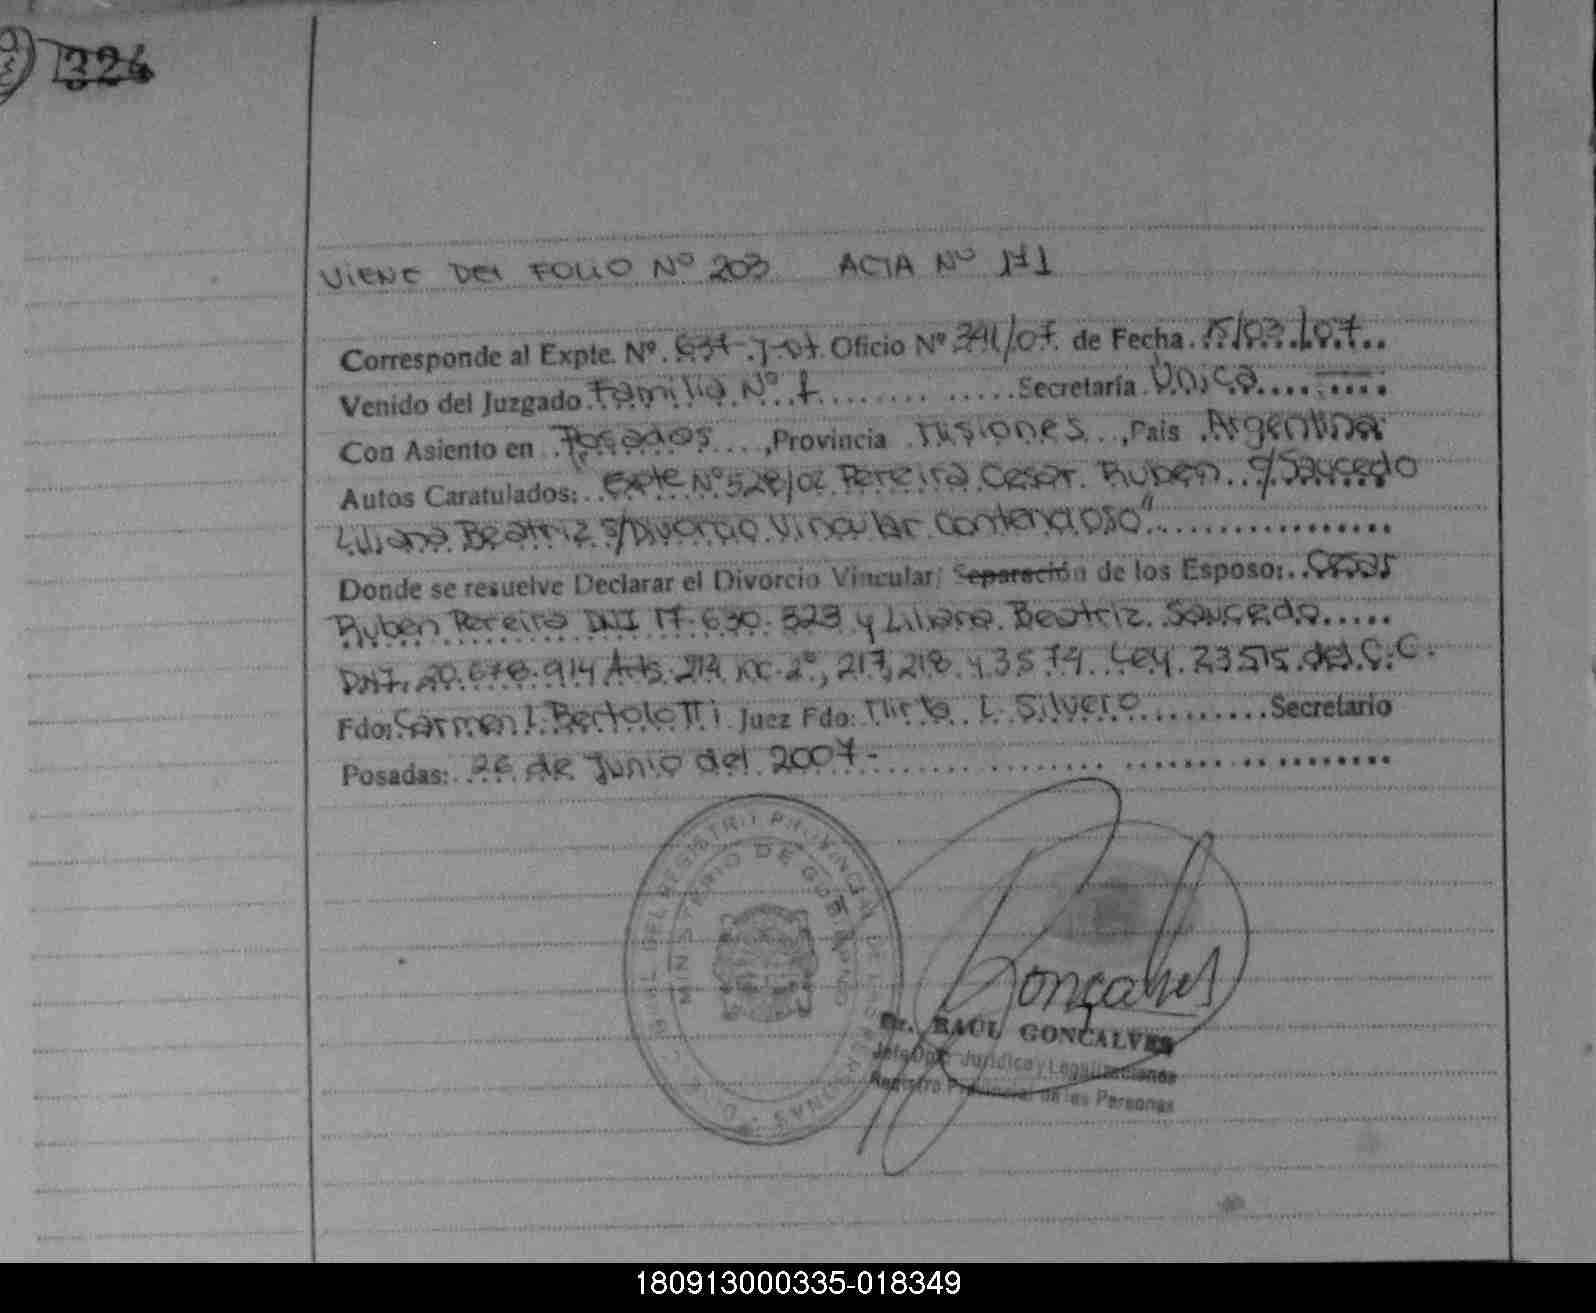 324
VIENE DEL FOLIO Nº 203 ACTA Nº 171
Corresponde al Expte. Nº 637-J-07 Oficio Nº 341/07 de Fecha 15/03/07
Venido del Juzgado Familia Nº 1 Secretaría Única
Con Asiento en Posadas, Provincia Misiones, País Argentina
Autos Caratulados: Expte Nº 528/02 Pereira Cesar Ruben c/Saucedo
Liliana Beatriz s/Divorcio Vincular contencioso"
Donde se resuelve Declarar el Divorcio Vincular; Separación de los Esposo: Cesar
Ruben Pereira DNI 17.630.323 y Liliana Beatriz Saucedo
DNI. 20.678.914 Arts. 214 inc. 2º, 217, 218 y 3574 Ley 23515 del C.C.
Fdo: Carmen I. Bertolotti Juez Fdo: Mirta L. Silvero Secretario
Posadas: 26 de Junio del 2007-
REGISTRO PROVINCIAL DE LAS PERSONAS
MINISTERIO DE GOBIERNO
Goncalves
Dr. RAUL GONCALVES
Jefe Dpto. Jurídico y Legalizaciones
Registro Provincial de las Personas
180913000335-018349